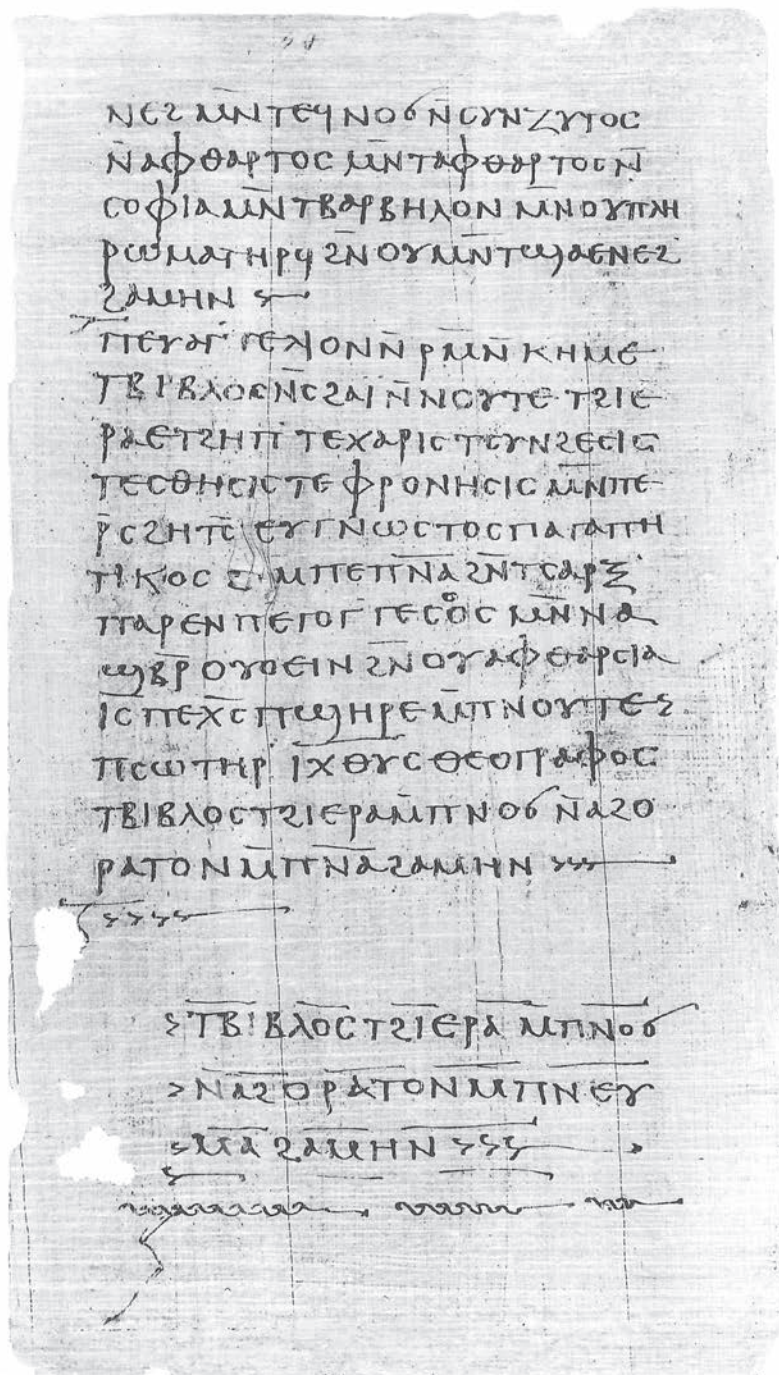 ⲛⲉϩ ⲙⲛ̄ ⲧⲉϥⲛⲟϭ ⲛ̄ⲥⲩⲛⲍⲩⲅⲟⲥ
ⲛ̄ⲁⲫⲑⲁⲣⲧⲟⲥ ⲙⲛ̄ ⲧⲁⲫⲑⲁⲣⲧⲟⲥ ⲛ̄
ⲥⲟⲫⲓⲁ ⲙⲛ̄ ⲧⲃⲁⲣⲃⲏⲗⲟⲛ ⲙⲛ̄ ⲟⲩⲡⲗⲏ
ⲣⲱⲙⲁ ⲧⲏⲣϥ ϩⲛ̄ ⲟⲩⲙⲛ̄ⲧϣⲁⲉⲛⲉϩ
ϩⲁⲙⲏⲛ
ⲡⲉⲩⲁⲅⲅⲉⲗⲓⲟⲛ ⲛ̄ⲣⲙ̄ⲛ̄ⲕⲏⲙⲉ
ⲧⲃⲓⲃⲗⲟⲥ ⲛ̄ⲥϩⲁⲓ̈ ⲛ̄ⲛⲟⲩⲧⲉ ⲧϩⲓⲉ
ⲣⲁ ⲉⲧϩⲏⲡ ⲧⲉⲭⲁⲣⲓⲥ ⲧⲥⲩⲛϩⲉⲥⲓⲥ
ⲧⲉⲥⲑⲏⲥⲓⲥ ⲧⲉⲫⲣⲟⲛⲏⲥⲓⲥ ⲙⲛ̄ ⲡⲉ
ⲣ̄ⲥϩⲏⲧⲥ̄ ⲉⲩⲅⲛⲱⲥⲧⲟⲥ ⲡⲁⲅⲁⲡⲏ
ⲧⲓⲕⲟⲥ ϩⲙ ⲡⲉⲡⲛ̄ⲁ̄ ϩⲛ̄ ⲧⲥⲁⲣⲝ
ⲡⲁⲣⲉⲛ ⲡⲉ ⲅⲟⲅⲅⲉⲥⲟⲥ ⲙⲛ̄ ⲛⲁ
ϣⲃⲣ̄ⲟⲩⲟⲉⲓⲛ ϩⲛ̄ ⲟⲩⲁⲫⲑⲁⲣⲥⲓⲁ
ⲓ̄ⲥ̄ ⲡⲉⲭ̄ⲥ̄ ⲡϣⲏⲣⲉ ⲙ̄ⲡⲛⲟⲩⲧⲉ
ⲡⲥⲱⲧⲏⲣ ⲓ̄ⲭ̄ⲑ̄ⲩ̄ⲥ̄ ⲑⲉⲟⲅⲣⲁⲫⲟⲥ
ⲧⲃⲓⲃⲗⲟⲥ ⲧϩⲓⲉⲣⲁ ⲙ̄ⲡⲛⲟϭ ⲛ̄ⲁϩⲟ
ⲣⲁⲧⲟⲛ ⲙ̄ⲡⲛ̄ⲁ̄ ϩⲁⲙⲏⲛ
ⲧⲃⲓⲃⲗⲟⲥ ⲧϩⲓⲉⲣⲁ ⲙⲡⲛⲟϭ
ⲛⲁϩⲟⲣⲁⲧⲟⲛ ⲙⲡⲛⲉⲩ
ⲙⲁ ϩⲁⲙⲏⲛ